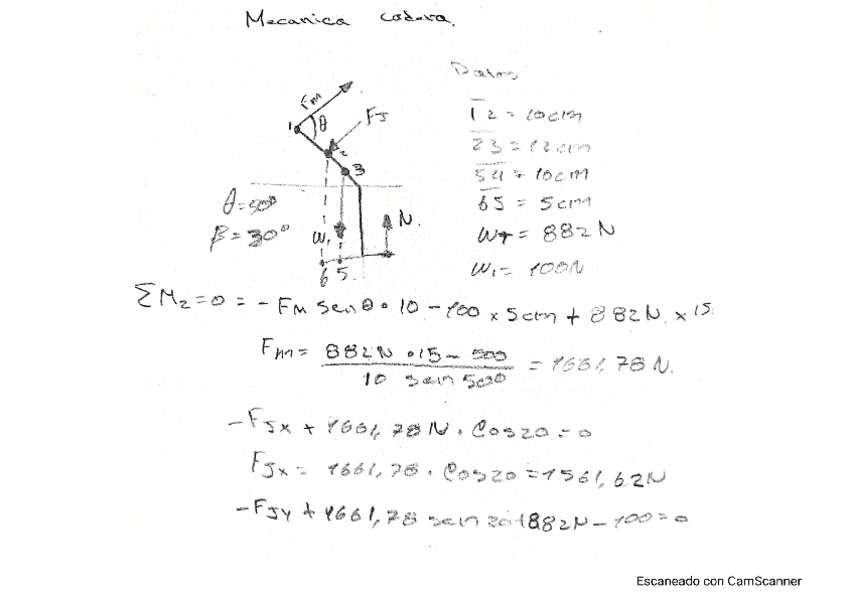 Mecanica cadera.
Datos
Fm
θ
FJ
1
2
3
12 = 10cm
23 = 12cm
54 = 10cm
65 = 5cm
WT = 882N
W1 = 100N
θ=50°
β=30°
W1
N.
6 5
ΣM2=0 = - FM Sen θ • 10 - 100 x 5cm + 882N x 15
Fm = 882N • 15 - 500 = 1661,78 N.
10 sen 50°
-FJx + 1661,78N . Cos20 = 0
FJx = 1661,78 . Cos20 = 1561,62N
-FJy + 1661,78 sen 20 + 882N - 100 = 0
Escaneado con CamScanner